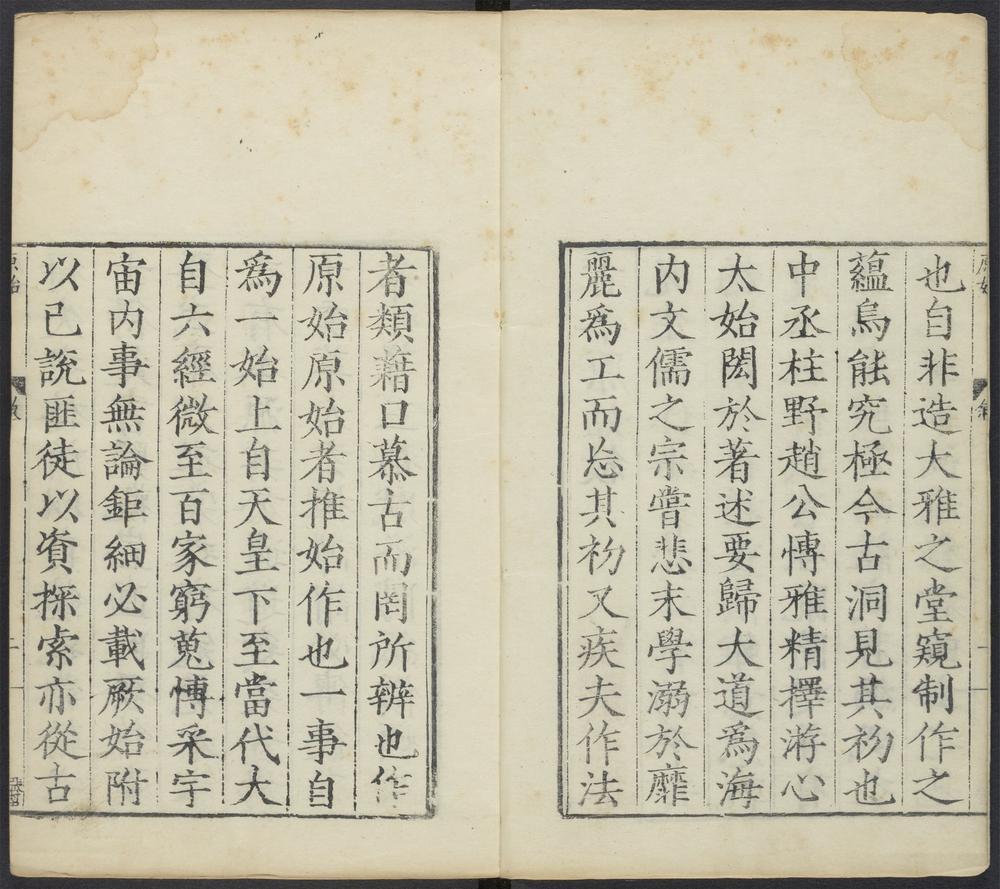 也自非造大雅之堂窺制作之
蘊烏能究極今古洞見其初也
中丞柱野趙公愽雅精擇游心
太始閎於著述要歸大道爲海
内文儒之宗嘗悲末學溺於靡
麗爲工而忘其初又疾夫作法
者類藉口慕古而罔所辨也作
原始原始者推始作也一事自
爲一始上自天皇下至當代大
自六經微至百家窮蒐愽采宇
宙内事無論鉅細必載厥始附
以己説匪徒以資探索亦從古
原始